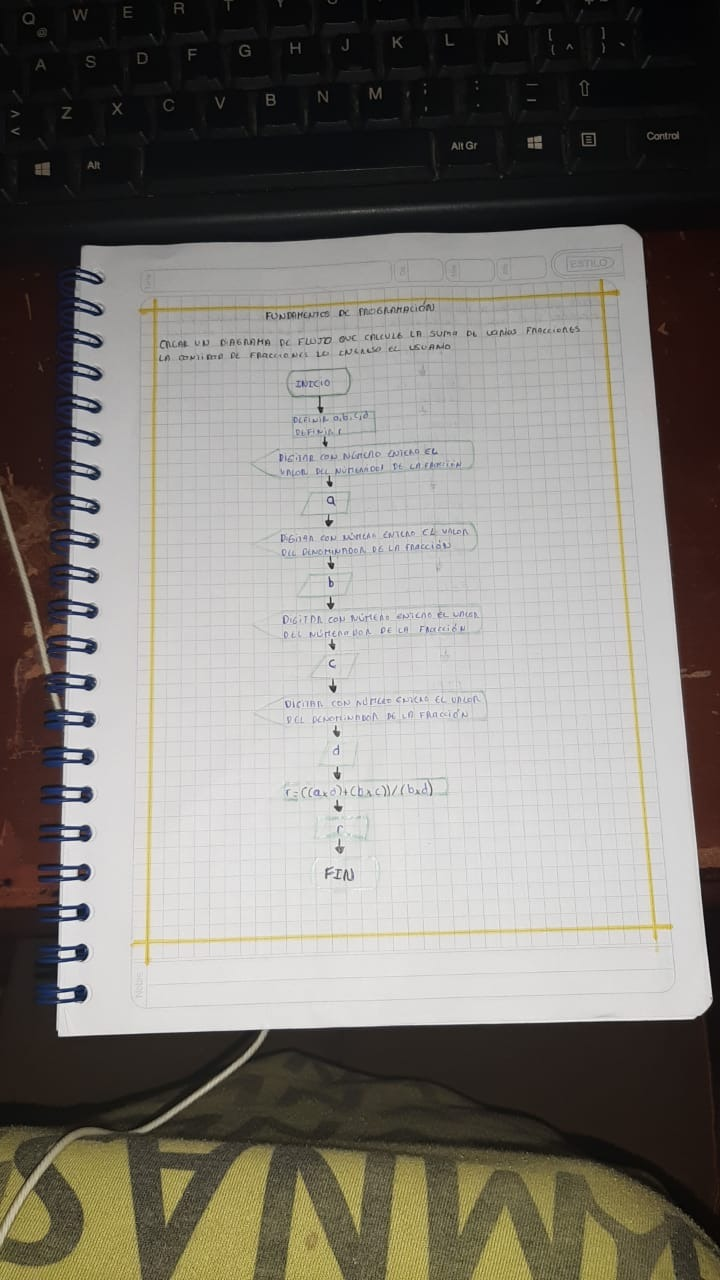 Q W E R T
@
A S D F G H J K L Ñ [ ]
{ ^ } `
> Z X C V B N M ; :
< , .
Alt Alt Gr Control
ESTILO
FUNDAMENTOS DE PROGRAMACIÓN
CREAR UN DIAGRAMA DE FLUJO QUE CALCULE LA SUMA DE VARIAS FRACCIONES
LA CANTIDAD DE FRACCIONES LO INGRESO EL USUARIO
INICIO
DEFINIR a,b,c,d
DEFINIR r
DIGITAR CON NÚMERO ENTERO EL
VALOR DEL NUMERADOR DE LA FRACCIÓN
a
DIGITAR CON NÚMERO ENTERO EL VALOR
DEL DENOMINADOR DE LA FRACCIÓN
b
DIGITAR CON NÚMERO ENTERO EL VALOR
DEL NÚMERADOR DE LA FRACCIÓN
c
DIGITAR CON NÚMERO ENTERO EL VALOR
DEL DENOMINADOR DE LA FRACCIÓN
d
r=((axd)+(bxc))/(bxd)
r
FIN
Nota: